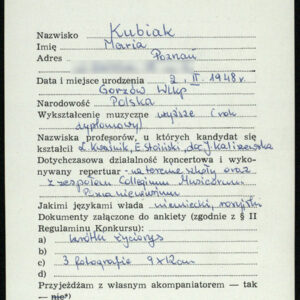 Nazwisko Kubiak
Imię Maria
Adres Poznań
Data i miejsce urodzenia 2. II. 1948 r.
Gorzów Wlkp
Narodowość Polska
Wykształcenie muzyczne wyższe (rok
dyplomowy)
Nazwiska profesorów, u których kandydat się
kształcił L. Kwaśnik, E. Stoiński, doc. J. Kaliszewska
Dotychczasowa działalność koncertowa i wyko-
nywany repertuar - na terenie szkoły oraz
z zespołem Collegium Musicorum
Posnaniensium
Jakimi językami włada niemiecki, rosyjski
Dokumenty załączone do ankiety (zgodnie z § II
Regulaminu Konkursu):
a) krótki życiorys
b)
c) 3 fotografie 9x12 cm
d)
Przyjeżdżam z własnym akompaniatorem — tak
— nie*)